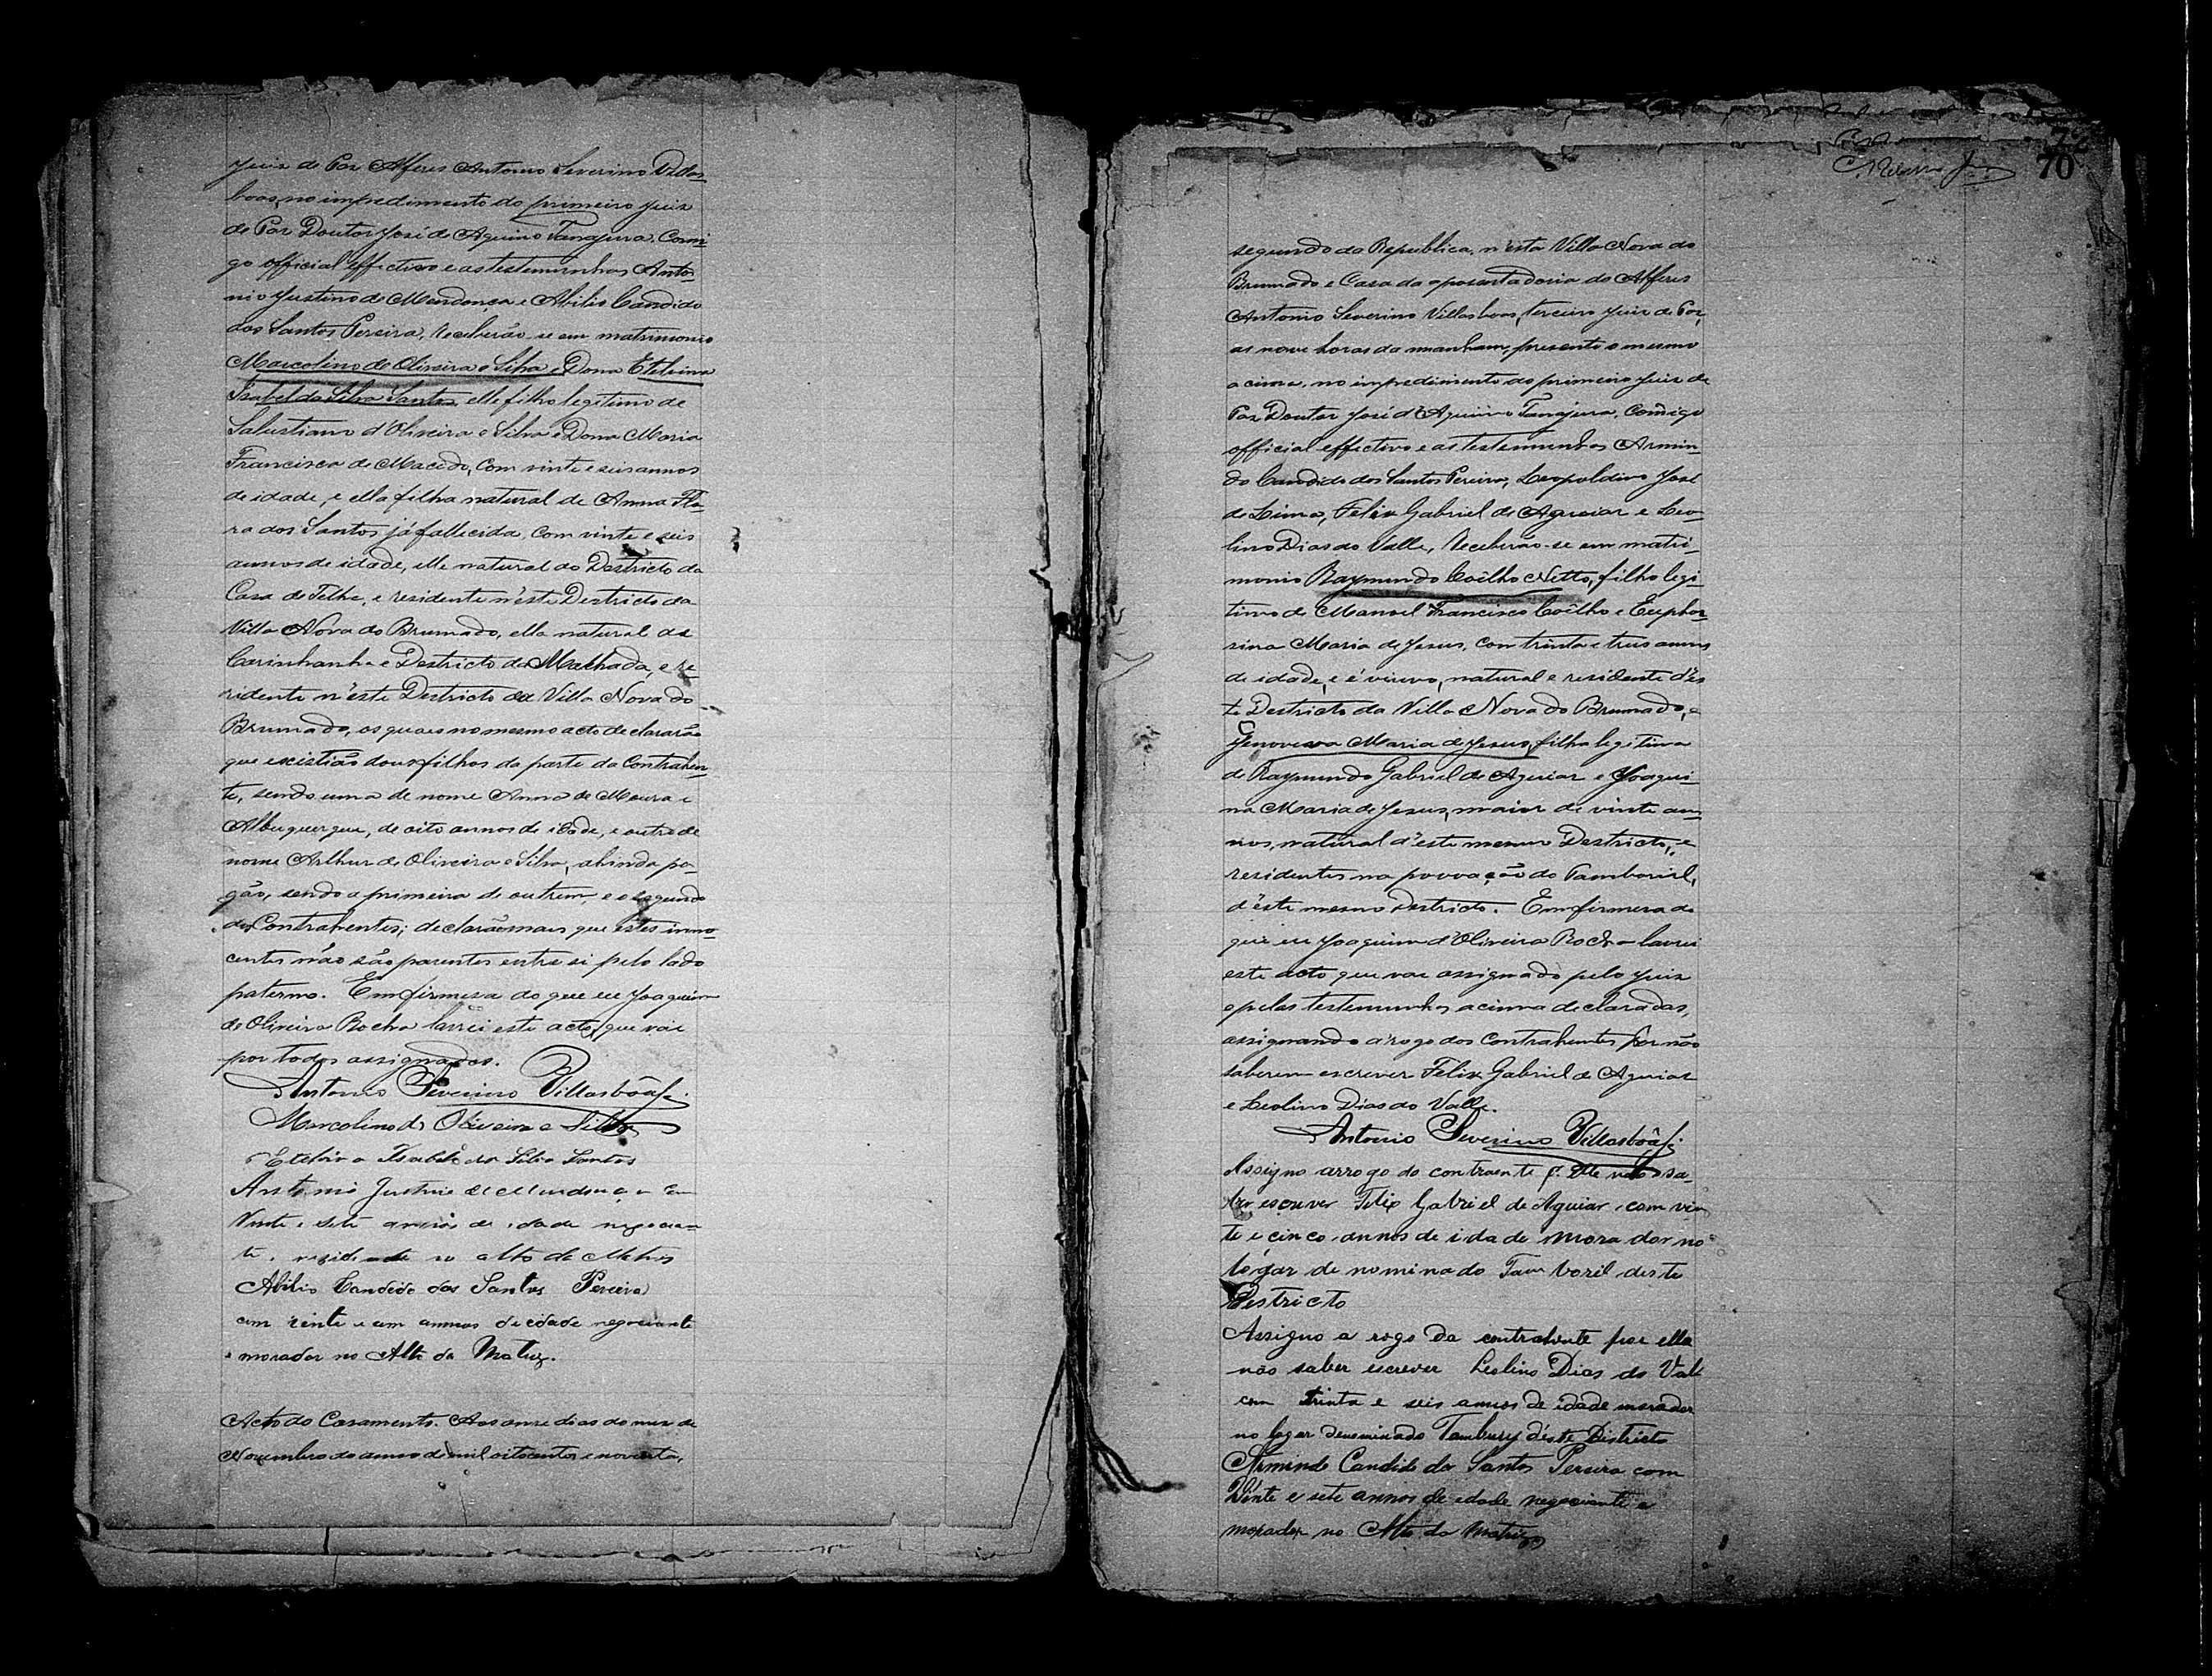 Juiz de Paz Alferes Antonio Severino Villas
boas, no impedimento do primeiro juiz
de Paz Doutor José de Aquino Tanajura, Comi-
go official effectivo e as testemunhas Anto-
nio Justino de Mendonça e Abilio Candido
dos Santos Pereira, receberão-se em matrimonio
Marcolino de Oliveira e Silva e Dona Etelvina
Isabel da Silva Santos, elle filho legitimo de
Salustiano d'Oliveira e Silva e Dona Maria
Francisca de Macedo, com vinte e seis annos
de idade, e ella filha natural de Anna Flo-
ra dos Santos já fallecida, com vinte e seis
annos de idade, elle natural do Destricto da
Casa de Telha, e residente n'este Destricto da
Villa Nova do Brumado, ella natural de
Carinhanha e Destricto da Malhada, e re-
sidente n'este Destricto da Villa Nova do
Brumado, os quaes no mesmo acto declararão
que existião dous filhos da parte da Contrahen-
te, sendo uma de nome Anna de Moura e
Albuquerque, de oito annos de idade, e outro de
nome Arthur de Oliveira e Silva, ahinda pa-
gão, sendo a primeira de outrem e o segundo
dos Contrahentes; declarão mais que estes inno-
centes não são parentes entre si pelo lado
paterno. Em firmesa do que eu Joaquim
de Oliveira Rocha lavrei este acto, que vai
por todos assignados.
Antonio Severino Villasbôas
Marcolino de Oliveira e Silva
Etelvina Isabel da Silva Santos
Antonio Justino de Mendonça com
Vinte e sete annos de idade negocian-
te, residente no Alto da Matriz
Abilio Candido dos Santos Pereira
com vinte e um annos de idade negociante
e morador no Alto da Matriz.
Acto do Casamento. Aos onze dias do mez de
Novembro do anno de mil oitocentos e noventa,
72
70
segundo da Republica, n'esta Villa Nova do
Brumado e Casa da aposentadoria do Alferes
Antonio Severino Villasboas, terceiro Juiz de Paz,
as nove horas da manham, presente o mesmo
acima, no impedimento do primeiro Juiz de
Paz Doutor José d'Aquino Tanajura, Comigo
official effectivo e as testemunhas Armin-
do Candido dos Santos Pereira, Leopoldino José
de Lima, Felix Gabriel de Aguiar e Leo-
lino Dias do Valle, receberão-se em matri-
monio Raymundo Coêlho Netto, filho legi-
timo de Manoel Francisco Coêlho e Euphro-
sina Maria de Jesus, com trinta e tres annos
de idade, e é viuvo, natural e residente d'es-
te Destricto da Villa Nova do Brumado, e
Genoveva Maria de Jesus, filha legitima
de Raymundo Gabriel de Aguiar e Joaqui-
na Maria de Jesus, maior de vinte an-
nos, natural d'este mesmo Destricto, e
residentes na povoação do Tamboril,
d'este mesmo Destricto. Em firmesa do
que eu Joaquim d'Oliveira Rocha lavrei
este acto que vae assignado pelo Juiz
e pelas testemunhas acima declaradas,
assignando a rogo dos Contrahentes por não
saberem escrever Felix Gabriel de Aguiar
e Leolino Dias do Valle.
Antonio Severino Villasbôas
Assigno arrogo do contraente p. elle não sa-
ber escrever Felix Gabriel de Aguiar, com vin
te e cinco annos de idade morador no
logar denominado Tamboril deste
Destricto
Assigno a rogo da contrahente por ella
não saber escrever Leolino Dias do Vale
com trinta e seis annos de idade morador
no logar denominado Tambury d'este Districto
Armindo Candido dos Santos Pereira com
Vinte e sete annos de idade negociante e
morador no Alto da Matriz